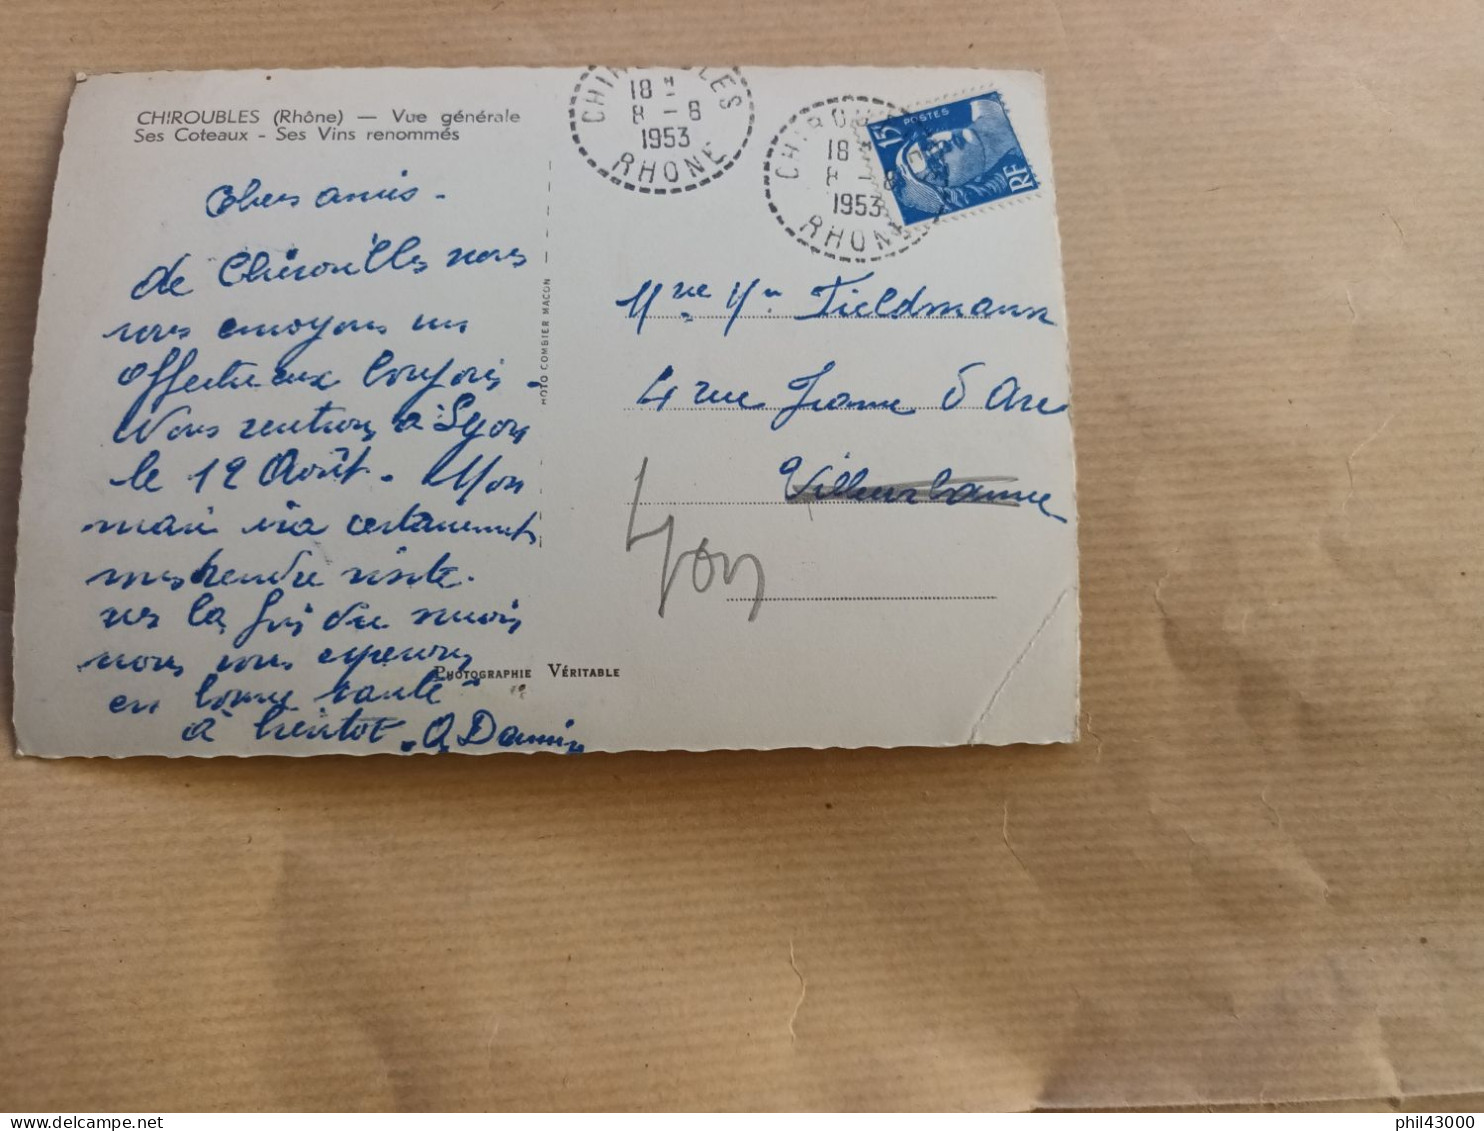 CHIROUBLES (Rhône) — Vue générale
Ses Coteaux - Ses Vins renommés
Chers amis -
de Chiroubles nous
vous envoyons un
affectueux bonjour -
Nous rentrons à Lyon
le 12 Août. Mon
mari ira certainement
vous rendre visite.
vers la fin du mois
nous vous espérons
en bonne santé
à bientôt. A Damin
HOTO COMBIER MACON
PHOTOGRAPHIE VÉRITABLE
CHIROUBLES
18 H
8 - 8
1953
RHONE
CHIROUBLES
18 H
8 - 8
1953
RHONE
15
POSTES
RF
Mme Mr Fieldmann
4 rue Jeanne d Arc
Villeurbanne
Lyon
phil43000